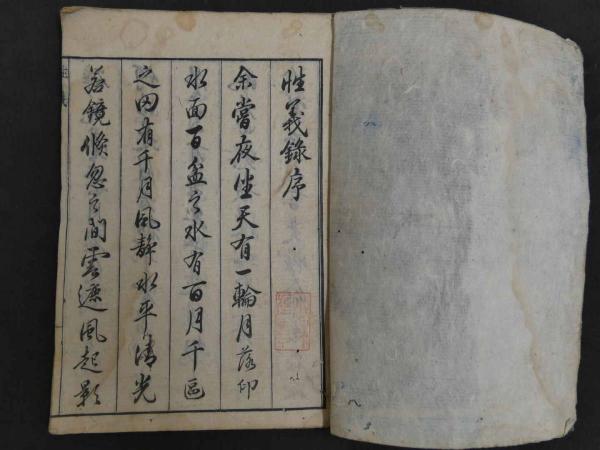 性義錄序
余嘗夜坐天有一輪月落印
水面百盆之水有百月千區
之因有千月風靜水平清光
若鏡倏忽之間雲遮風起影